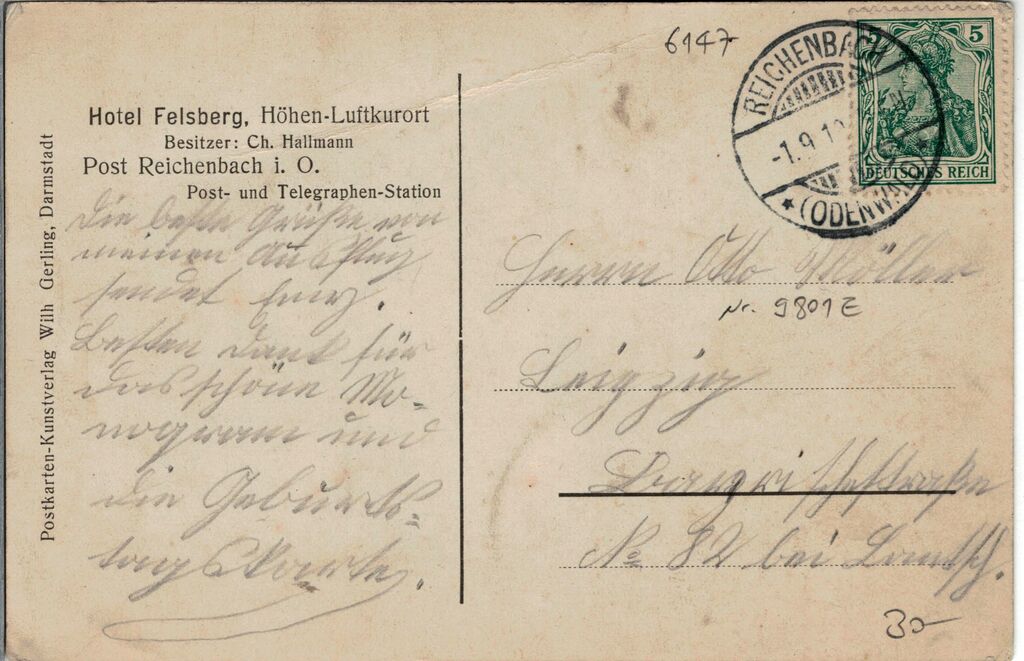 6147
5
REICHENBACH
-1.9.1
* (ODENWALD) *
DEUTSCHES REICH
Hotel Felsberg, Höhen-Luftkurort
Besitzer: Ch. Hallmann
Post Reichenbach i. O.
Post- und Telegraphen-Station
Postkarten-Kunstverlag Wilh Gerling, Darmstadt
Die beste Grüße von
meinen Ausflug
sendet
Besten Dank für
das schöne Mo-
nogram und
die Geburts-
tagskarte.
Herrn Otto Möller
Nr. 9801 E
Leipzig
Bayrischestraße
No 82 bei
30-